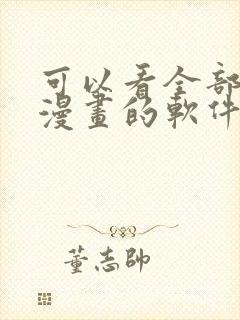 可以看全部
漫畫的軟件
董志帥